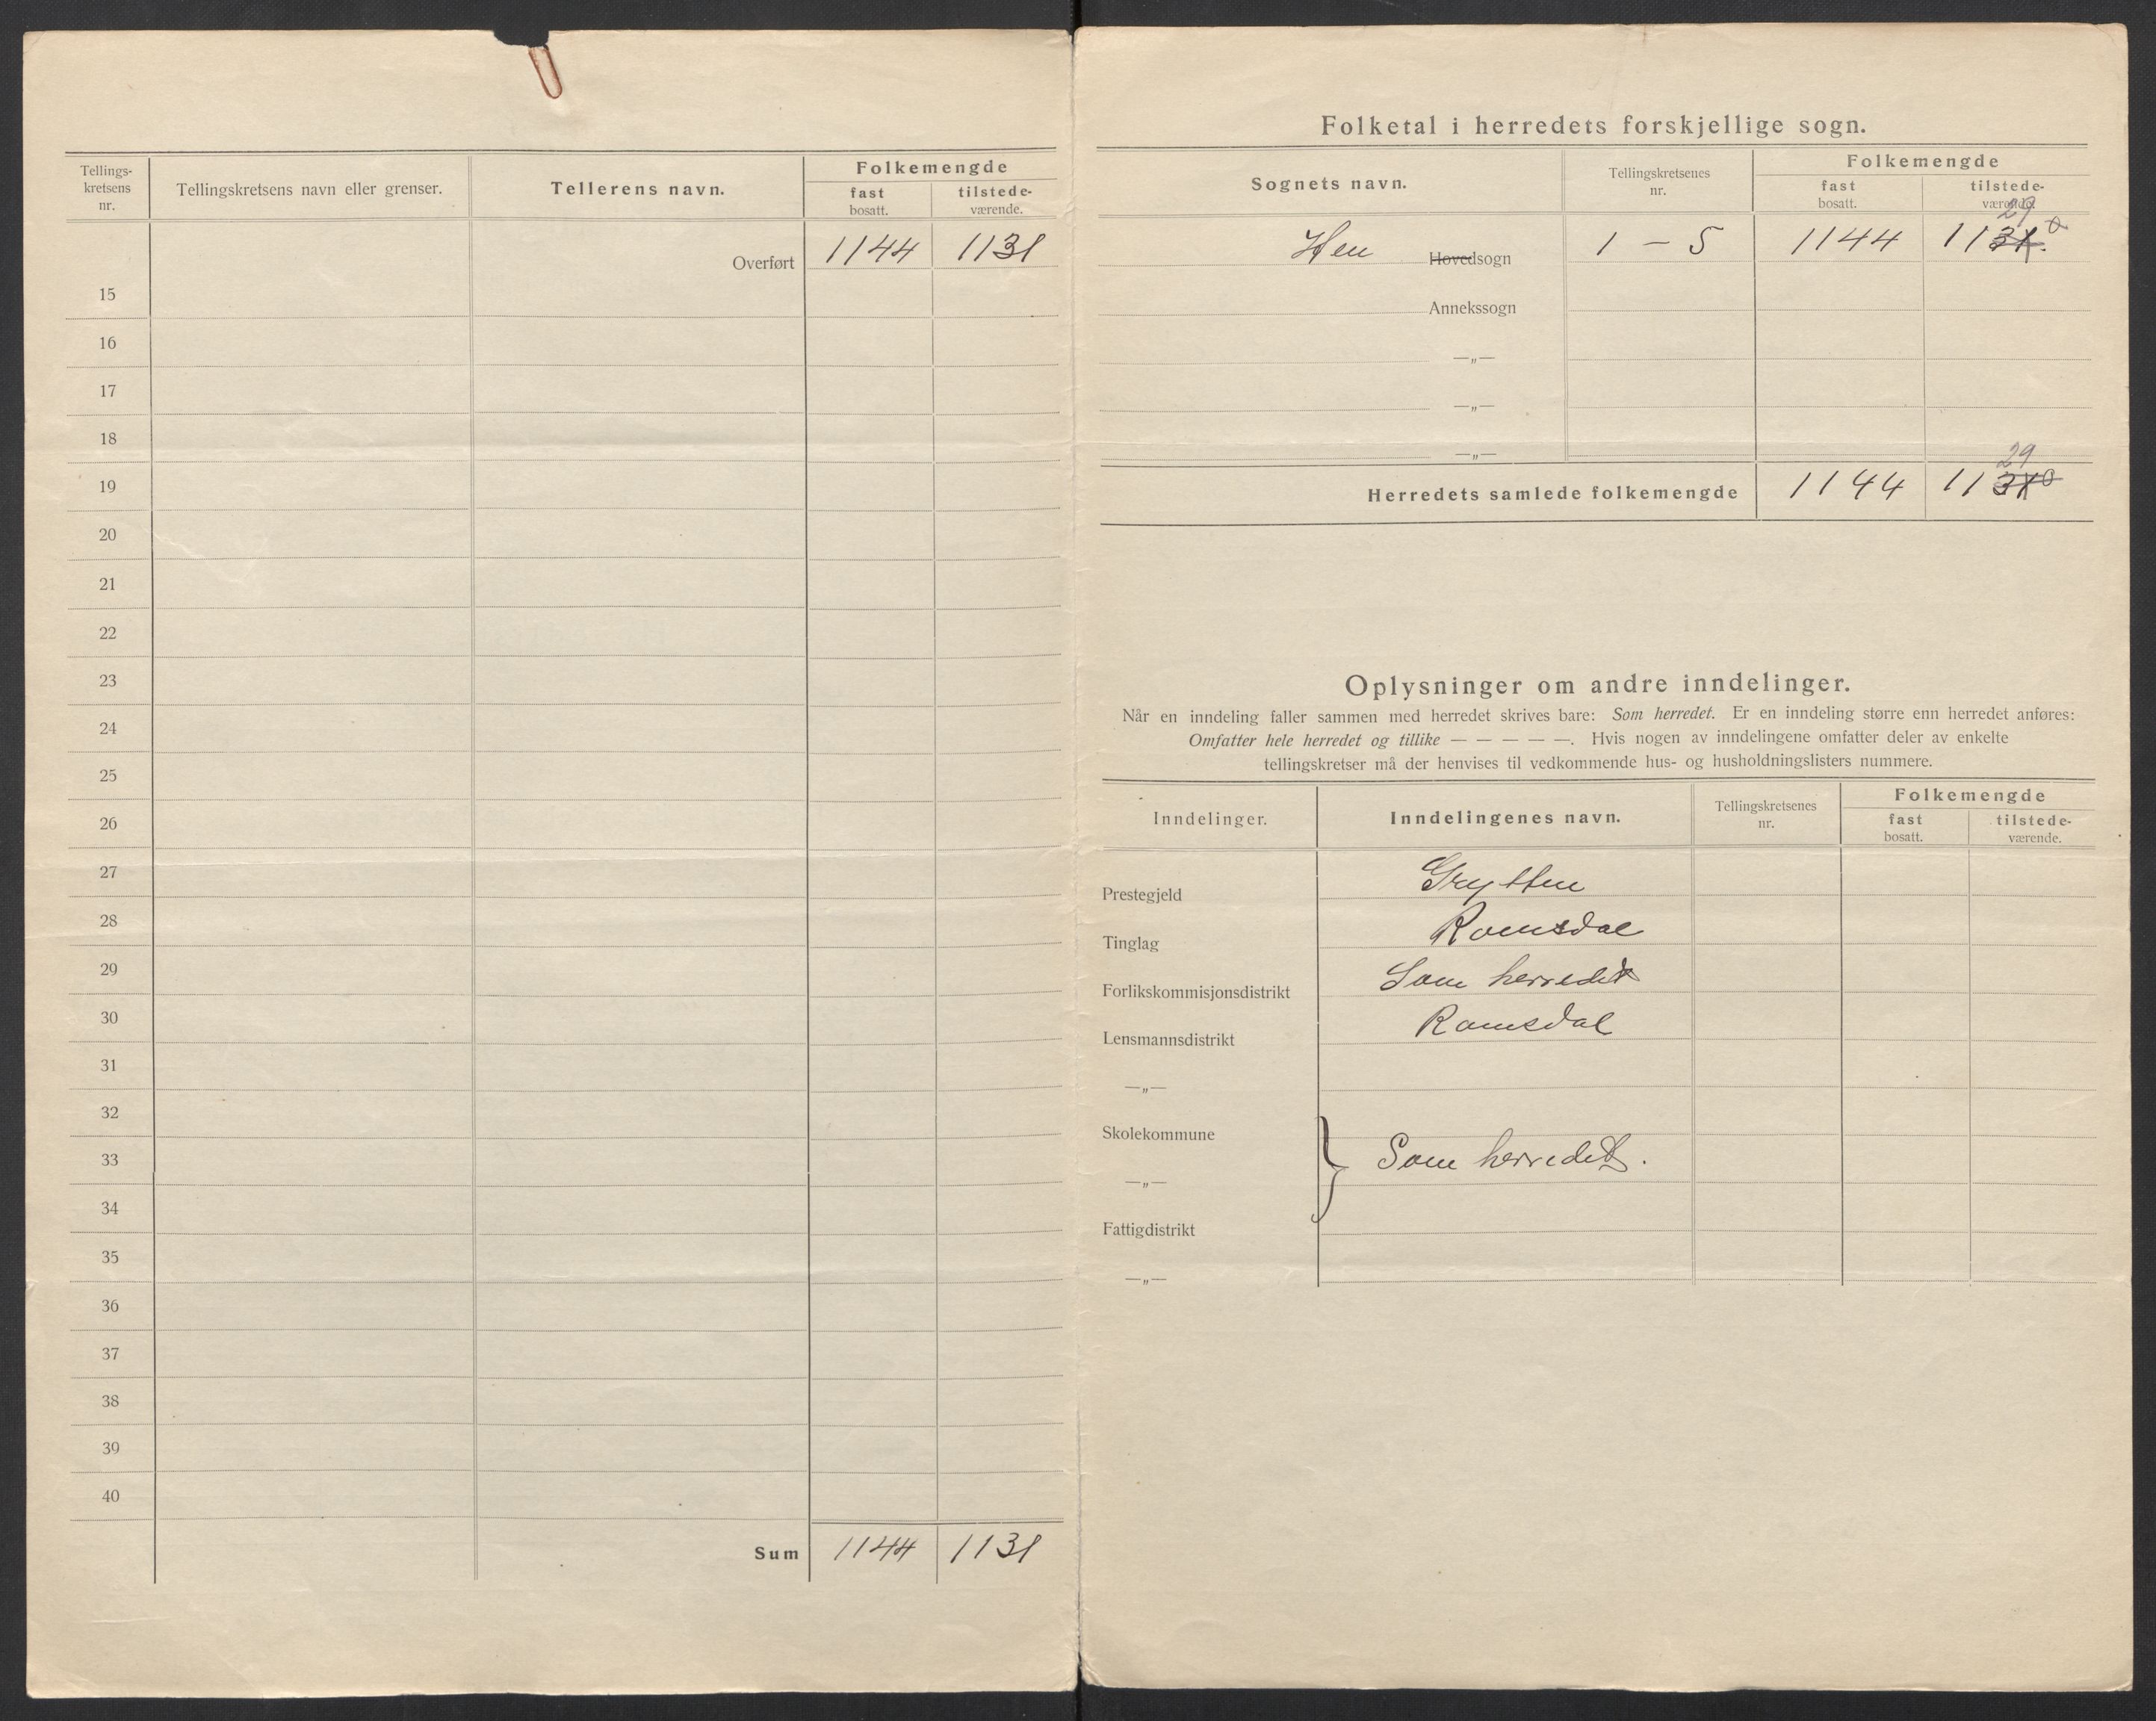 Tellings-
kretsens
nr.
Tellingskretsens navn eller grenser.
Tellerens navn.
Folkemengde
fast
bosatt.
tilstede-
værende.
Overført 1144 1131
15
16
17
18
19
20
21
22
23
24
25
26
27
28
29
30
31
32
33
34
35
36
37
38
39
40
Sum 1144 1131
Folketal i herredets forskjellige sogn.
Sognets navn.
Tellingskretsenes
nr.
Folkemengde
fast
bosatt.
tilstede-
værende.
29
Hen Hovedsogn 1 - 5 1144 1131. 0
Annekssogn
—„—
—„—
—„—
29
Herredets samlede folkemengde 1144 1131 0
Oplysninger om andre inndelinger.
Når en inndeling faller sammen med herredet skrives bare: Som herredet. Er en inndeling større enn herredet anføres:
Omfatter hele herredet og tillike — — — — —. Hvis nogen av inndelingene omfatter deler av enkelte
tellingskretser må der henvises til vedkommende hus- og husholdningslisters nummere.
Inndelinger.
Inndelingenes navn.
Tellingskretsenes
nr.
Folkemengde
fast
bosatt.
tilstede-
værende.
Prestegjeld Grytten
Tinglag Romsdal
Forlikskommisjonsdistrikt Som herredet
Lensmannsdistrikt Romsdal
—„—
Skolekommune
Som herredet.
—„—
Fattigdistrikt
—„—